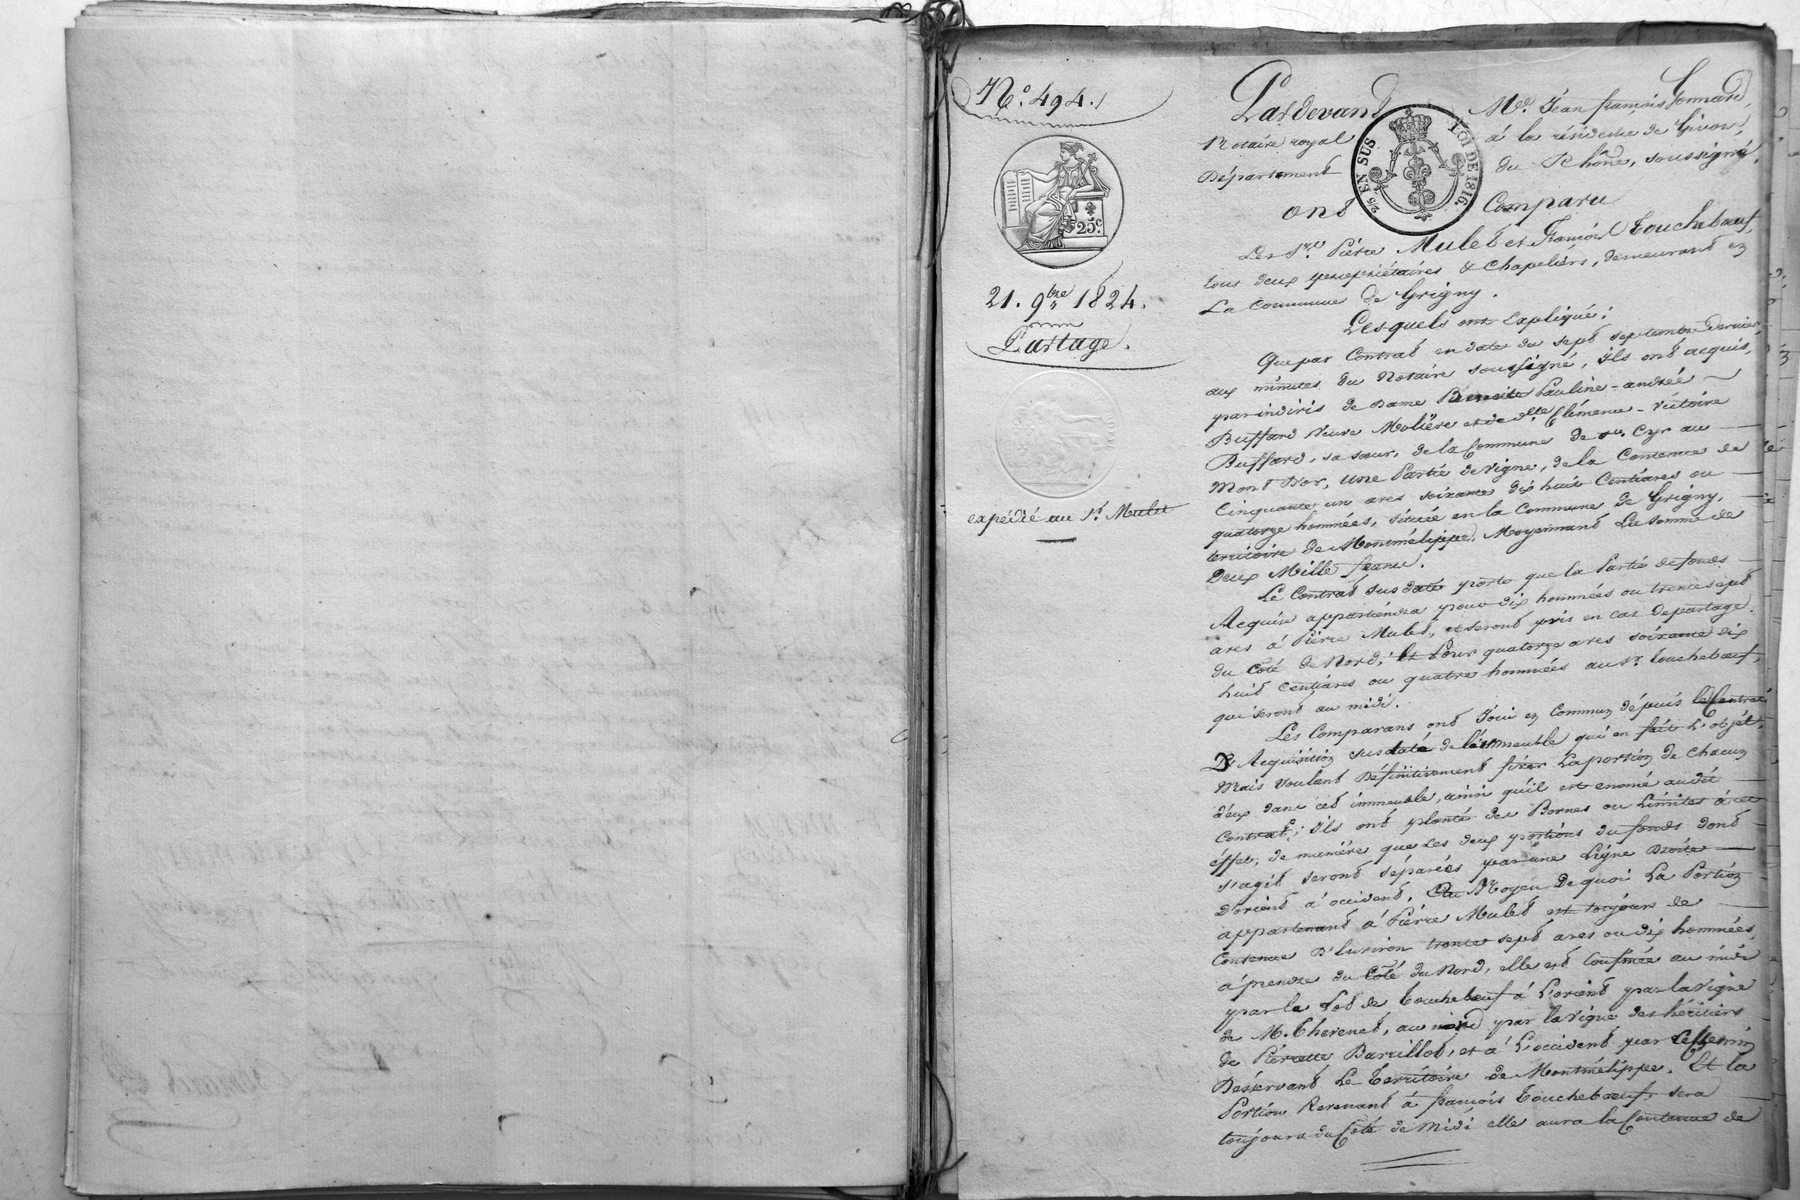 N.° 494.
25.c
21. 9bre 1824.
Partage.
expédié au Sr. Mulet
25 EN SUS LOI DE 1816.
Pardevant Me. Jean françois Gonnard,
Notaire royal à la résidence de Givors,
Département du Rhône, soussigné,
ont Comparu
Les Srs. Pierre Mulet et François Touchebœuf,
tous deux propriétaires & Chapeliers, demeurant en
La Commune de Grigny.
Lesquels ont Expliqué;
Que par Contrat en date du sept septembre dernier,
aux minutes du Notaire soussigné, ils ont acquis,
par indivis de Dame Benoite Pauline-andrée
Buffard Veuve Molière et de dlle Clémence-Victoire
Buffard, sa sœur, de la Commune de St. Cyr au
Mont D'or, une Partie de Vigne, de la Contenue de
Cinquante un ares soixante dix huit Centiares ou
quatorze hommées, située en la Commune de Grigny,
territoire de Montmélippe, Moyennant La somme de
Deux Mille francs.
Le Contrat sus daté porte que la Partie de fonds
Acquise appartiendra pour dix hommées ou trente sept
ares à Pierre Mulet, et seront pris en cas de partage
du Coté de Nord; Et Pour quatorze ares soixante dix
huit Centiares ou quatre hommées au Sr. Touchebœuf,
qui seront au midi.
Les Comparans ont Joui en Commun dépuis le Contrat
D'Acquisition susdaté de l'immeuble qui en fait L'objet,
Mais Voulant Définitivement fixer La portion de Chacun
d'eux dans cet immeuble, ainsi qu'il est enoncé audit
Contrat; ils ont planté des Bornes ou Limites à cet
éffet, de manière que Les deux portions du fonds dont
s'agit seront séparées par une Ligne Droite
D'orient à occident, Au Moyen De quoi La Portion
appartenant à Pierre Mulet est toujours de
Contenue D'Environ trente sept ares ou dix hommées,
à prendre du Coté du Nord, elle est Confinée au midi
par le Lot de Touchebœuf à L'orient par la Vigne
de M. Cherenet, au nord par la Vigne des héritiers
de Pierrette Barillot, et à L'occident par Le Chemin
Desservant Le Territoire de Montmélippe. Et la
Portion Revenant à françois Touchebœuf, sera
toujours du Coté de Midi elle aura la Contenue de